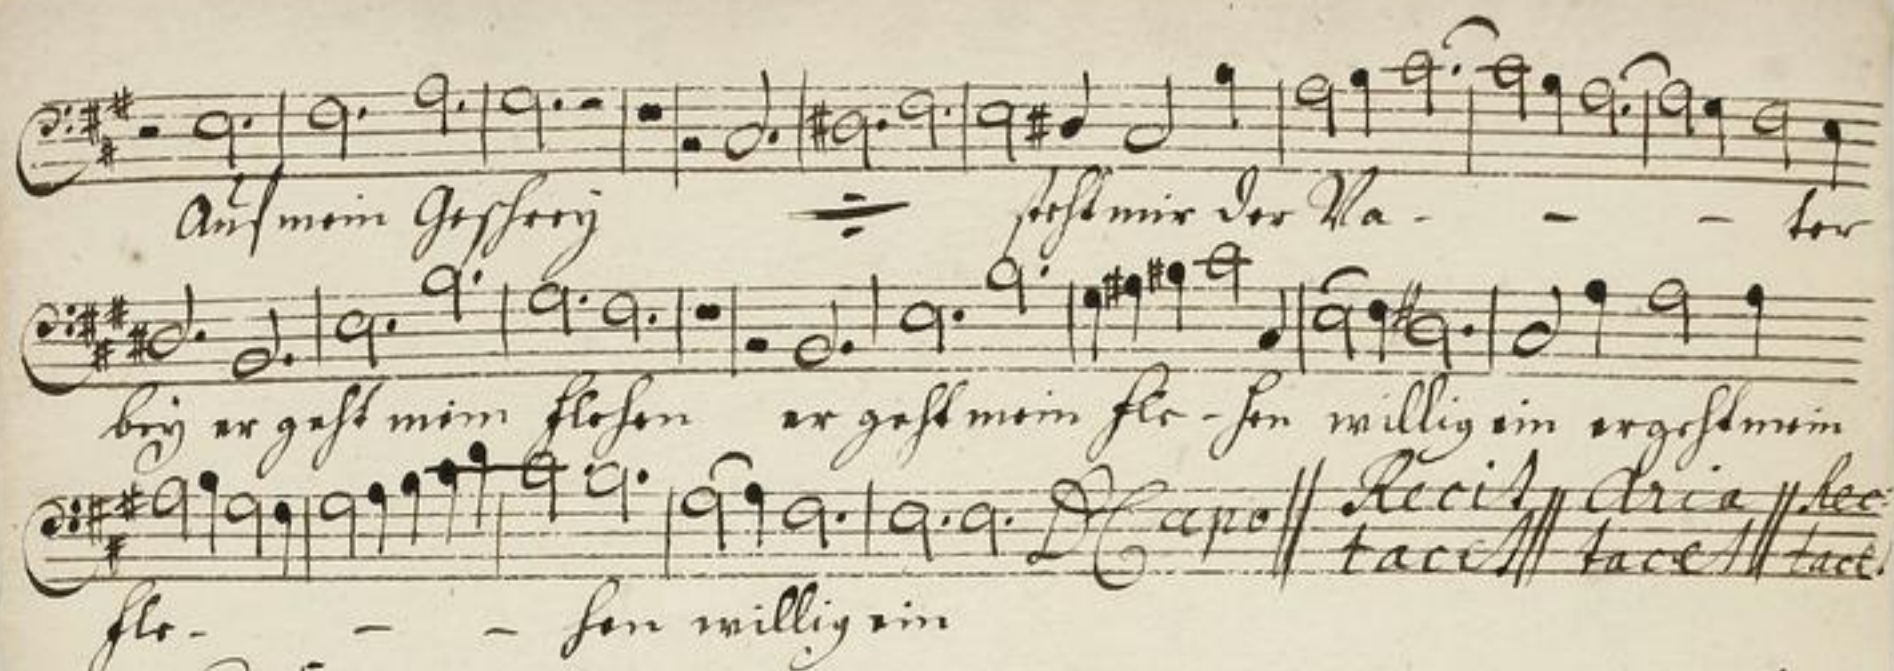 Auf mein Geschrey steht mir der Va - - - ter
bey er geht mein Flehen er geht mein Fle - hen willig ein er geht mein
D Capo || Recit tacet || Aria tacet || Rec: tacet.
Fle - - - hen willig ein